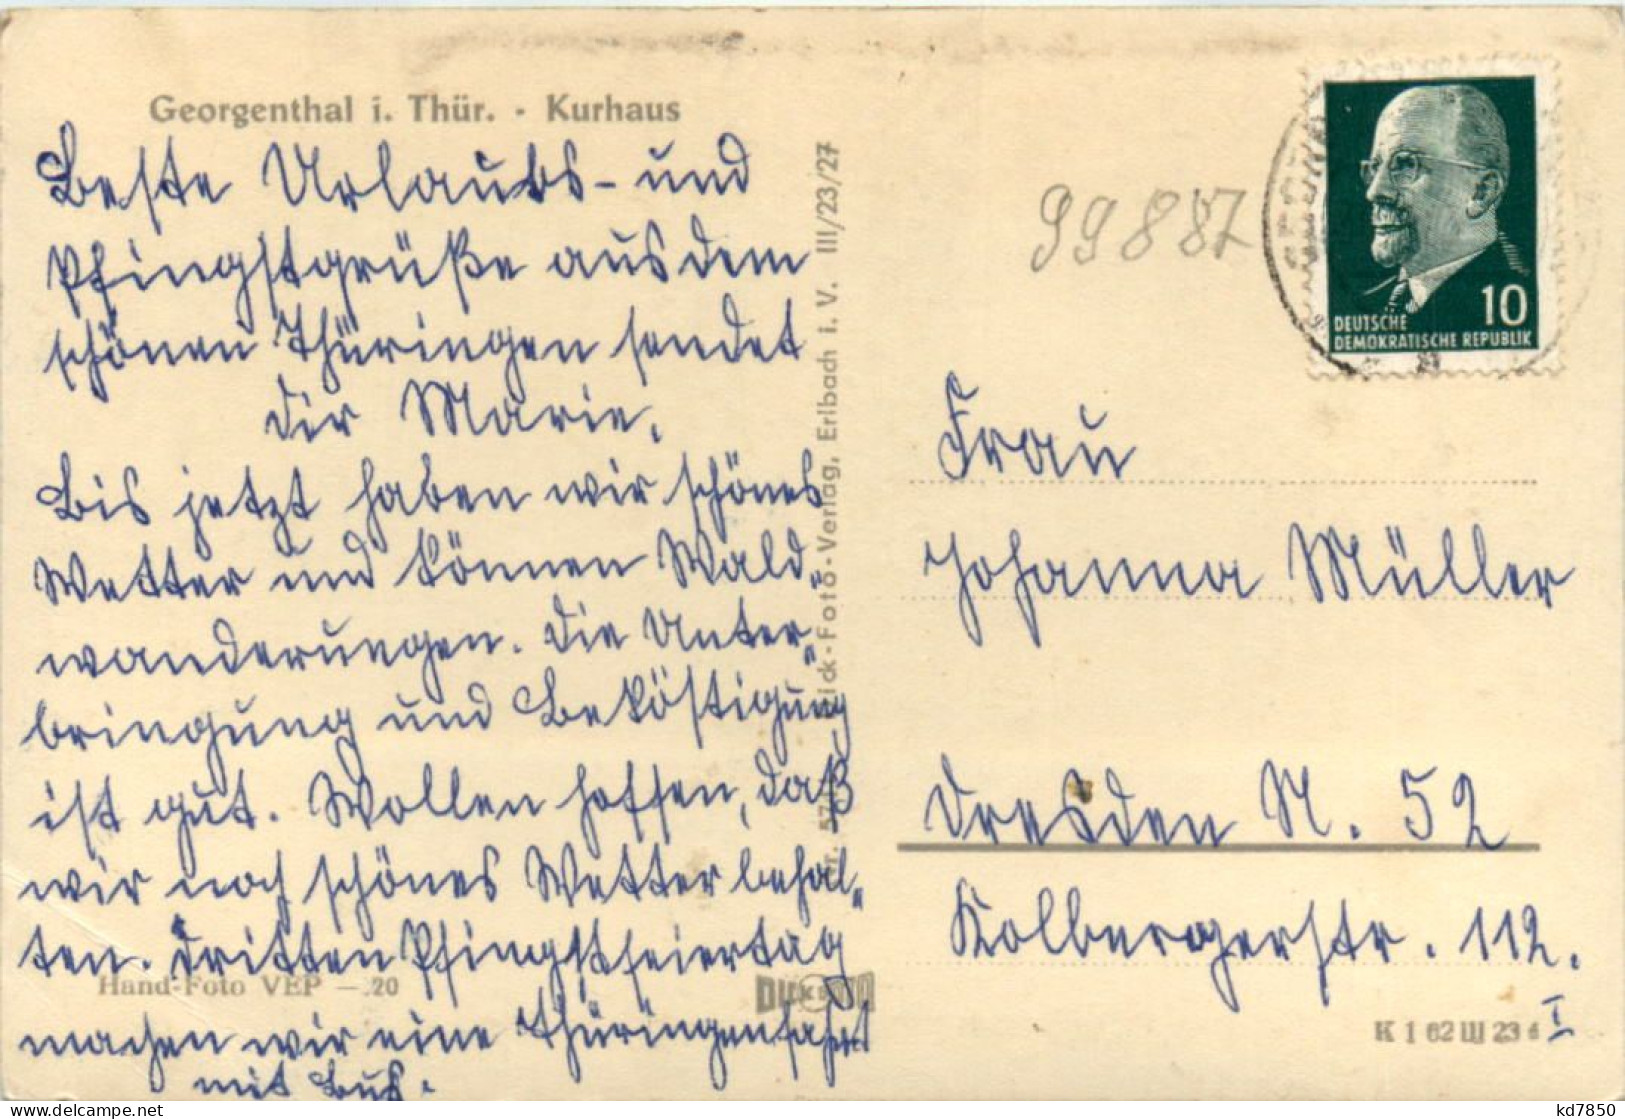 Georgenthal i. Thür. · Kurhaus
Beste Urlaubs- und
Pfingstgrüße aus dem
schönen Thüringen sendet
dir Marie.
Bis jetzt haben wir schönes
Wetter und können Wald„
wanderungen. Die Unter„
bringung und Beköstigung
ist gut. Wollen hoffen, daß
wir noch schönes Wetter behal„
ten. Dritten Pfingstfeiertag
machen wir eine Thüringenfahrt
mit Bus.
Hand-Foto VEP — .20
Bick-Foto-Verlag, Erlbach i. V. III/23/27
99887
10
DEUTSCHE
DEMOKRATISCHE REPUBLIK
Frau
Johanna Müller
Dresden N. 52
Kolbergerstr. 112.
I
K 1 62 III 23 d
kd7850
https://www.delcampe.net